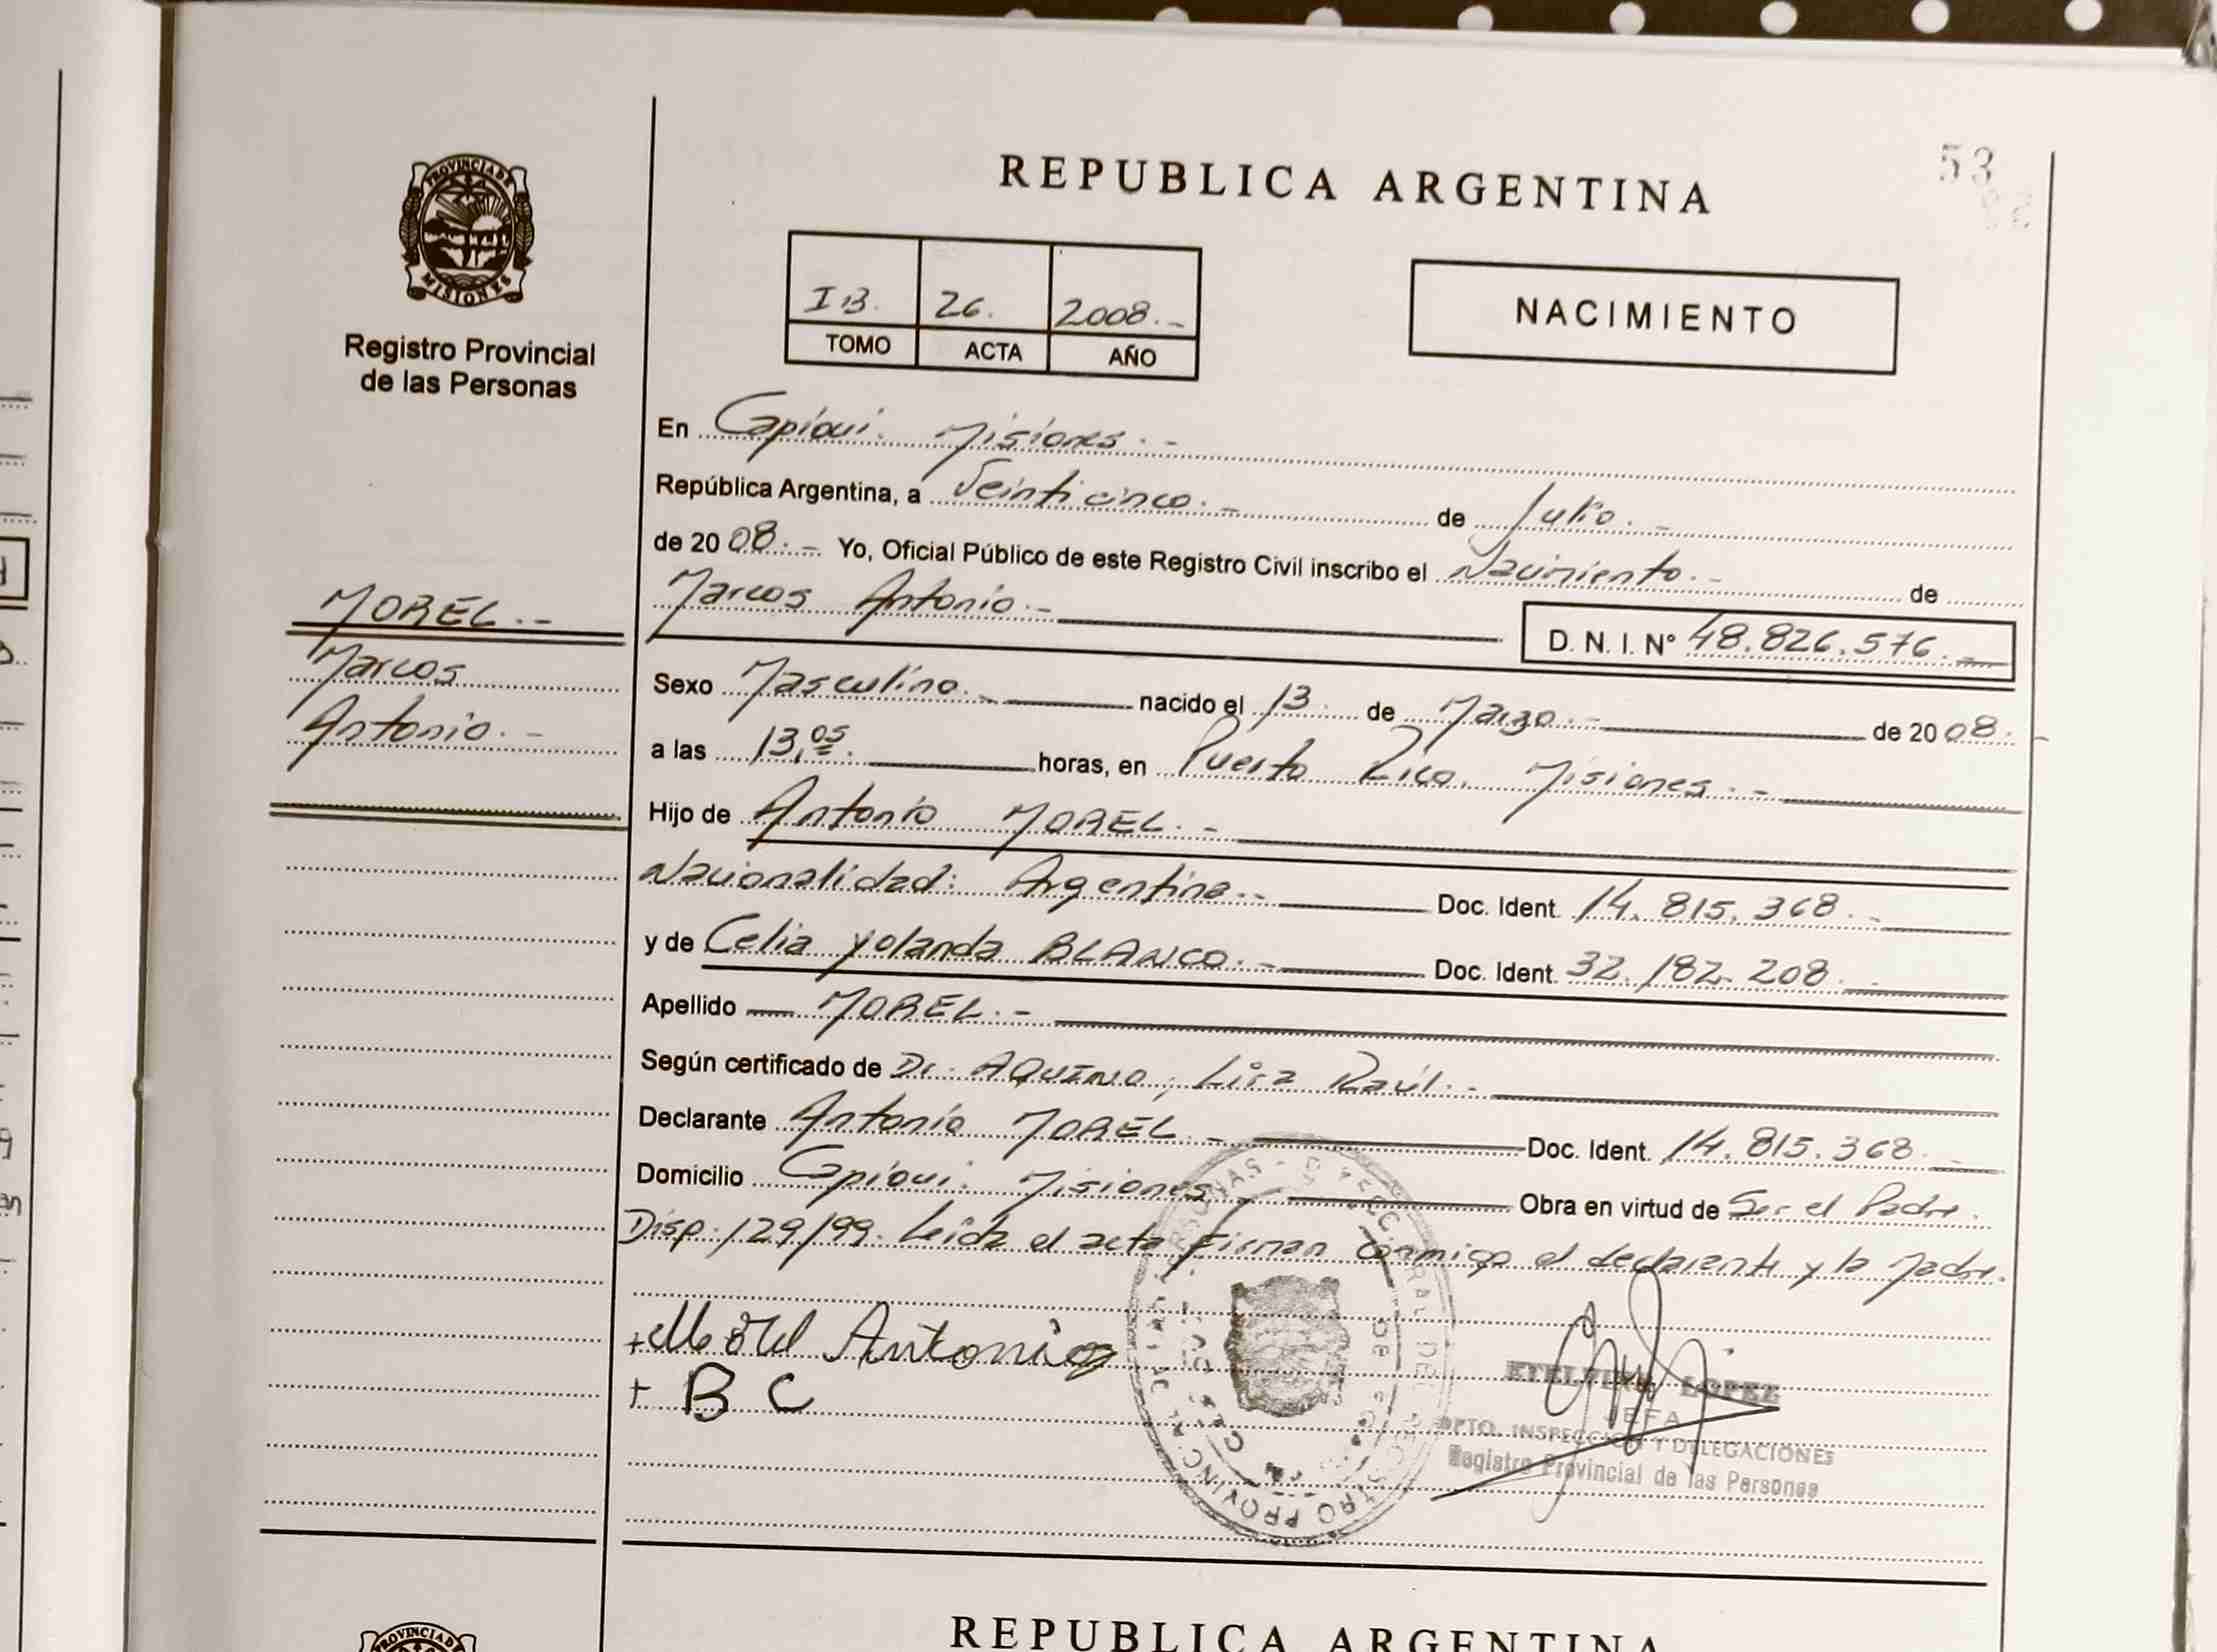 REPUBLICA ARGENTINA
53
PROVINCIA DE
MISIONES
Registro Provincial
de las Personas
I B. 26. 2008.-
TOMO ACTA AÑO
NACIMIENTO
En Capiovi. Misiones.-
República Argentina, a Veinticinco.- de Julio.-
de 2008.- Yo, Oficial Público de este Registro Civil inscribo el Nacimiento.- de
Marcos Antonio.-
D. N. I. N° 48.826.576.-
MOREL.-
Marcos
Antonio.-
Sexo Masculino.- nacido el 13. de Marzo.- de 2008.-
a las 13,05. horas, en Puerto Rico. Misiones.-
Hijo de Antonio MOREL.-
Nacionalidad: Argentina.- Doc. Ident. 14.815.368.-
y de Celia Yolanda BLANCO.- Doc. Ident. 32.182.208.-
Apellido MOREL.-
Según certificado de Dr. AQUINO, Raúl.-
Declarante Antonio MOREL.- Doc. Ident. 14.815.368.-
Domicilio Capiovi. Misiones.- Obra en virtud de Ser el Padre.
Disp. 129/99. Leida el acta Firman conmigo el declarante y la Madre.
+ Morel Antonio
+ B C
LOPEZ
JEFA
DPTO. INSPECCION Y DELEGACIONES
Registro Provincial de las Personas
REPUBLICA ARGENTINA
PROVINCIA D